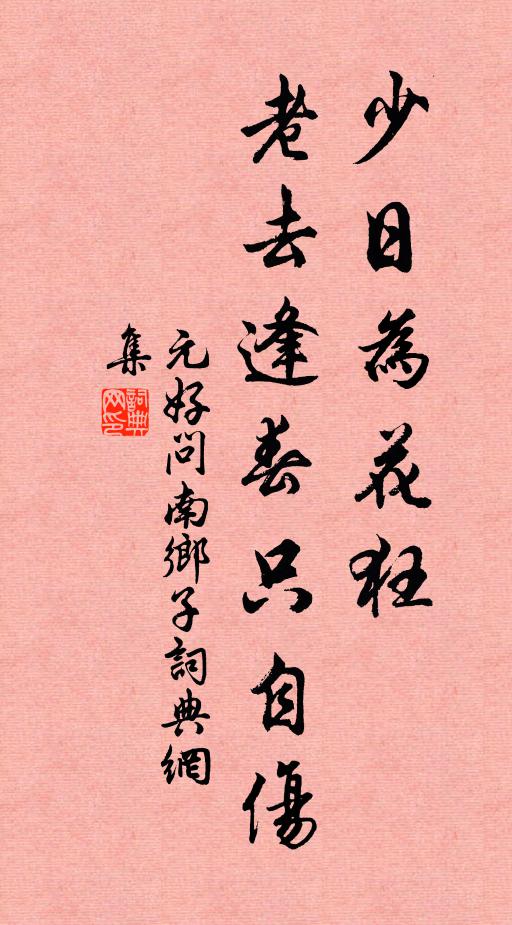 少日為花狂
老去逢春只自傷
元好问南鄉子詞典網
集
詞典
网印